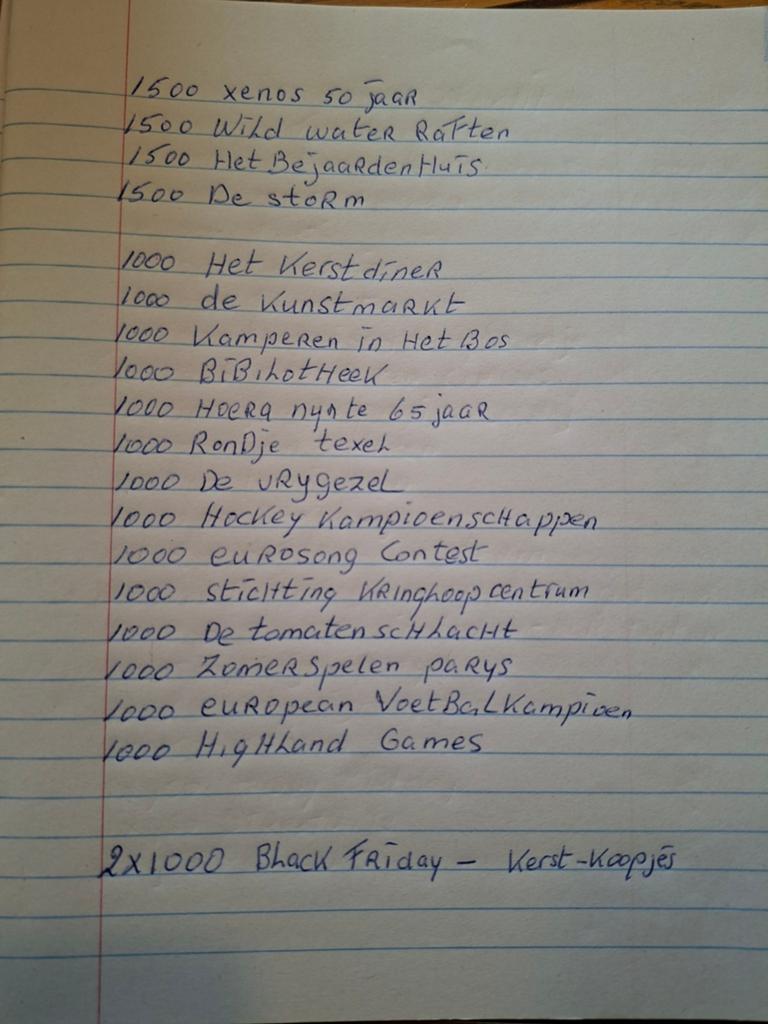 1500 xenos 50 jaar
1500 Wild water Raften
1500 Het BejaardenHuis
1500 De storm
1000 Het Kerstdiner
1000 de Kunstmarkt
1000 Kamperen in Het Bos
1000 BiBiliotHeek
1000 Hoera nynte 65 jaar
1000 RonDje texel
1000 De vrygezel
1000 Hockey KampioenscHappen
1000 eurosong Contest
1000 sticHting Kringloop centrum
1000 De tomatenscHlacHt
1000 Zomerspelen parys
1000 european VoetBalKampioen
1000 HigHland Games
2x1000 Black Friday - Kerst-Koopjes